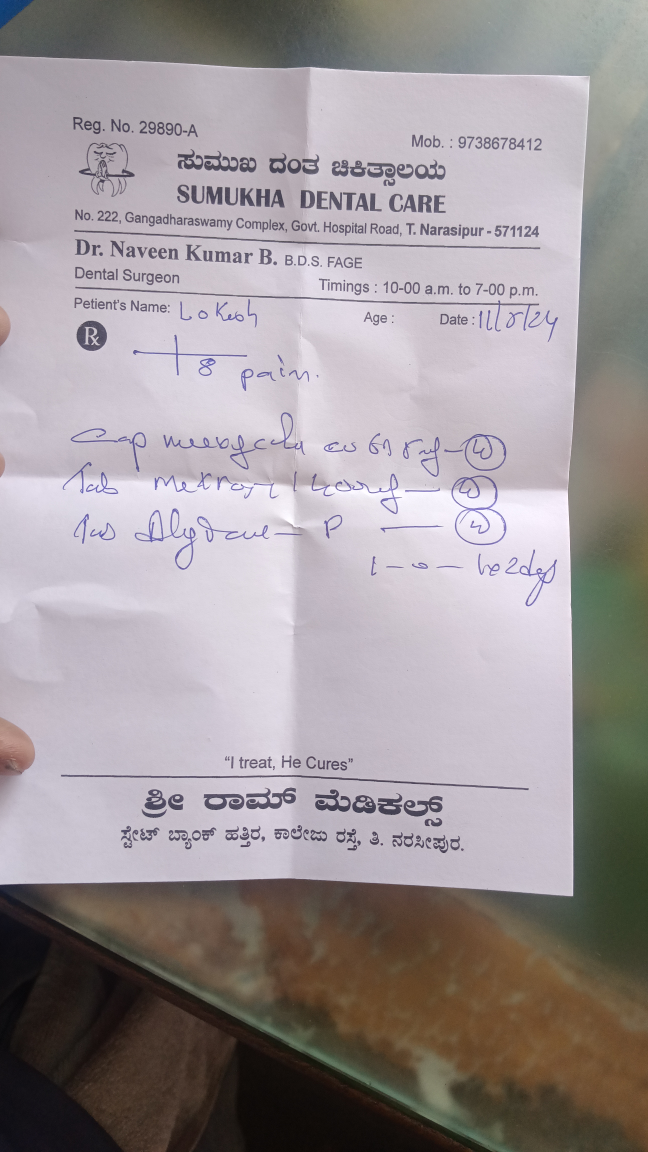 Reg. No. 29890-A
Mob. : 9738678412
ಸುಮುಖ ದಂತ ಚಿಕಿತ್ಸಾಲಯ
SUMUKHA DENTAL CARE
No. 222, Gangadharaswamy Complex, Govt. Hospital Road, T. Narasipur - 571124
Dr. Naveen Kumar B. B.D.S. FAGE
Dental Surgeon
Timings : 10-00 a.m. to 7-00 p.m.
Petient's Name: Lokesh Age : Date :
Rx
8 pain.
Cap
Tab
Tab P
"I treat, He Cures"
ಶ್ರೀ ರಾಮ್ ಮೆಡಿಕಲ್ಸ್
ಸ್ಟೇಟ್ ಬ್ಯಾಂಕ್ ಹತ್ತಿರ, ಕಾಲೇಜು ರಸ್ತೆ, ತಿ. ನರಸೀಪುರ.